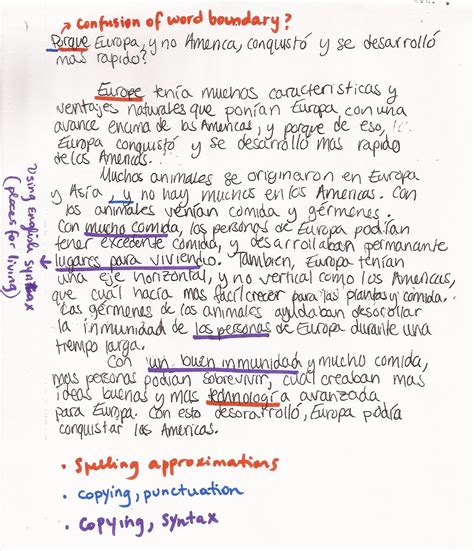 → Confusion of word boundary?
Porque Europa, y no America, conquistó y se desarrolló
mas rapido?
Europe tenía muchos caracteristicas y
ventajes naturales que ponían Europa con una
avance encima de las Americas, y porque de eso,
Europa conquistó y se desarrolló mas rapido
de las Americas.
Muchos animales se originaron en Europa
y Asía, y no hay muchos en los Americas. Con
los animales venían comida y gérmenes.
Con mucho comida, los personas de Europa podían
tener excedente comida, y desarrollaban permanante
lugares para viviendo. Tambien, Europa tenían
una eje horizontal, y no vertical como los Americas,
que cual hacía mas facil crecer para las plantas y comida.
Las gérmenes de los animales ayudaban desorollar
la inmunidad de los personas de Europa durante una
trempo larga.
Con un buen inmunidad y mucho comida,
mas personas podían sobrevivir, cual creaban mas
ideas buenas y mas technología avanzada
para Europa. Con esto desorarrolló, Europa podía
conquistar los Americas.
Using English syntax
(places for living)
• spelling approximations
• copying, punctuation
• copying, syntax